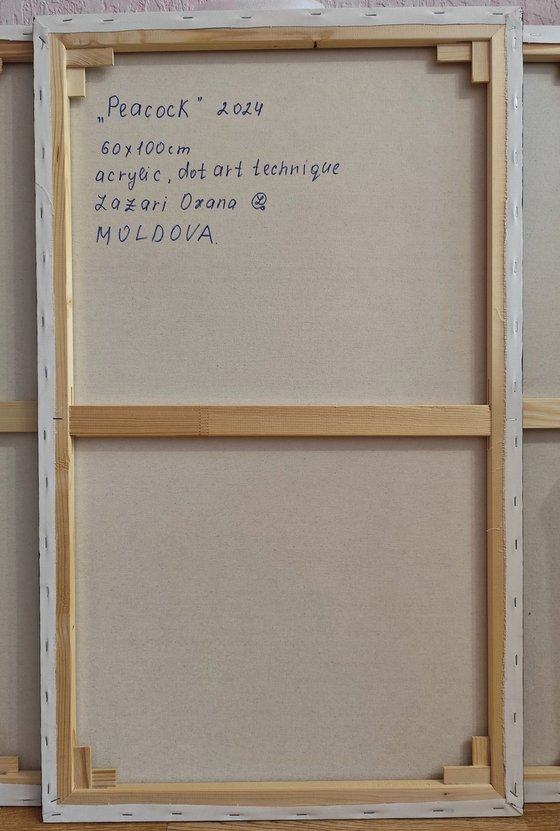 „Peacock” 2024
60x100cm
acrylic, dot art technique
Lazari Oxana
MOLDOVA.